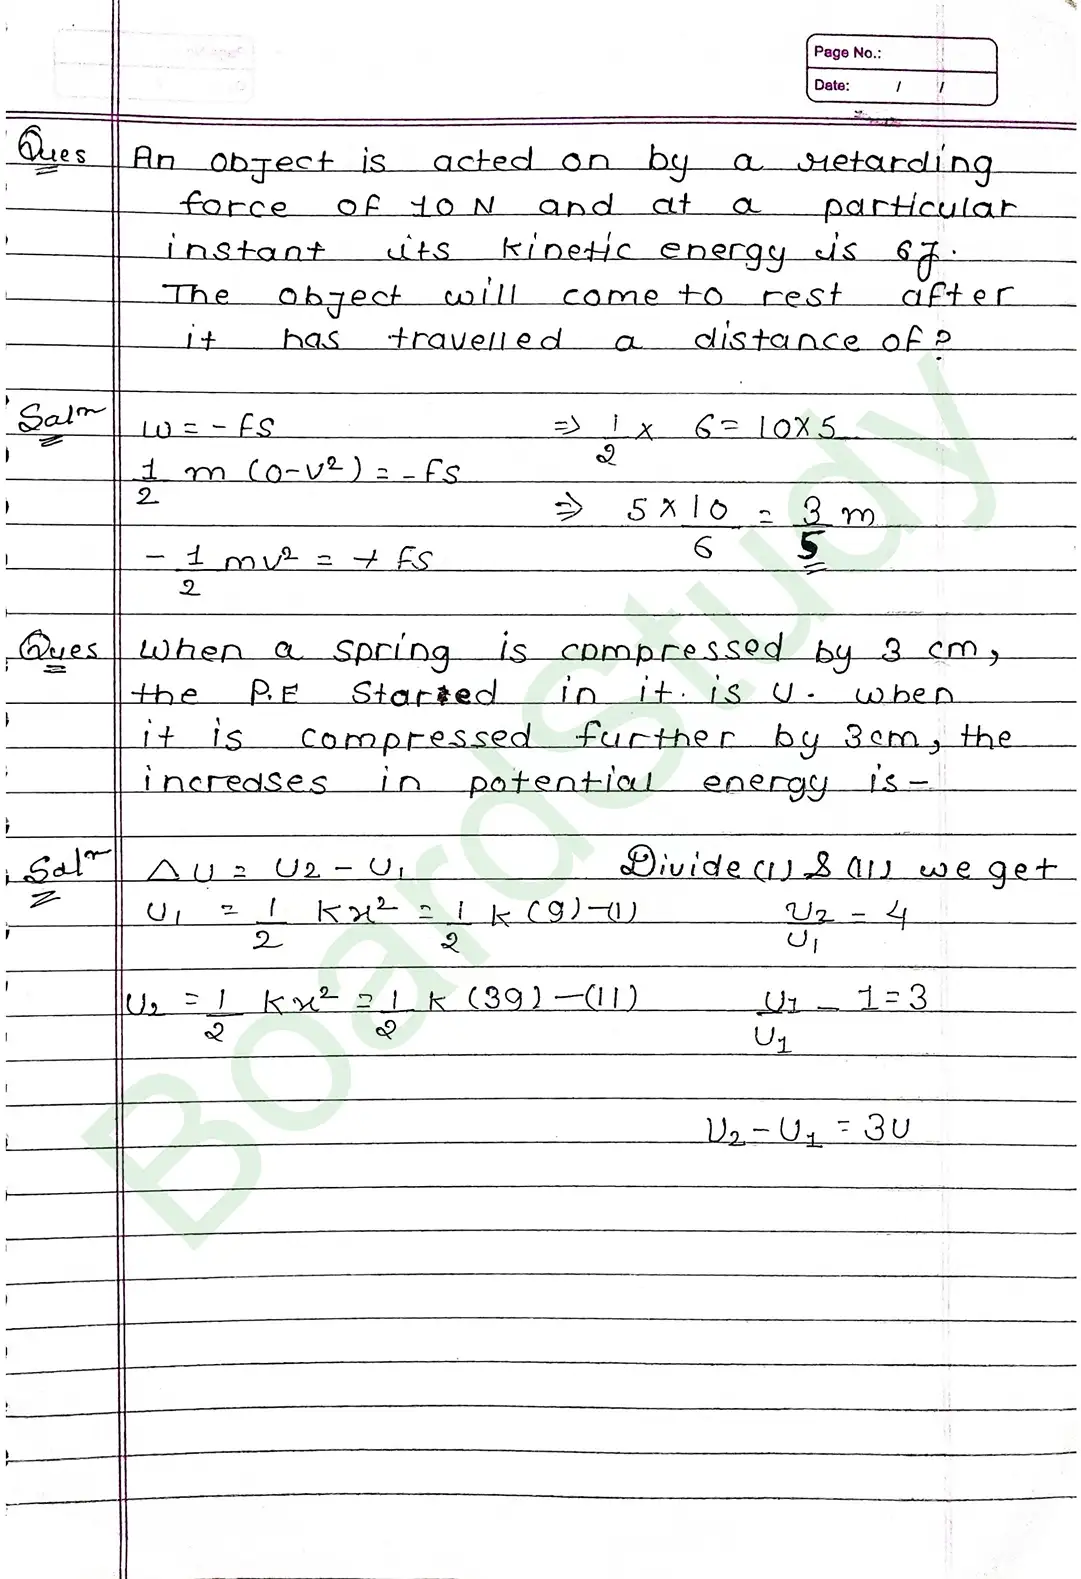 Page No.:
Date: / /
Ques An object is acted on by a retarding
force of 10 N and at a particular
instant its kinetic energy is 6J.
The object will come to rest after
it has travelled a distance of?
Salⁿ W = - FS ⇒ 1/2 x 6 = 10 x 5
1/2 m (0-v²) = - FS
⇒ 5 x 10/6 = 3/5 m
- 1/2 mv² = + FS
Ques When a spring is compressed by 3 cm,
the P.E Starred in it. is U. when
it is compressed further by 3cm, the
increases in potential energy is -
Salⁿ ΔU = U2 - U1 Divide (1) & (11) we get
U1 = 1/2 Kx² = 1/2 k (9) -(1) U2/U1 = 4
U2 = 1/2 Kx² = 1/2 K (39) -(11) U1/U1 - 1 = 3
U2 - U1 = 3U
BoardStudy